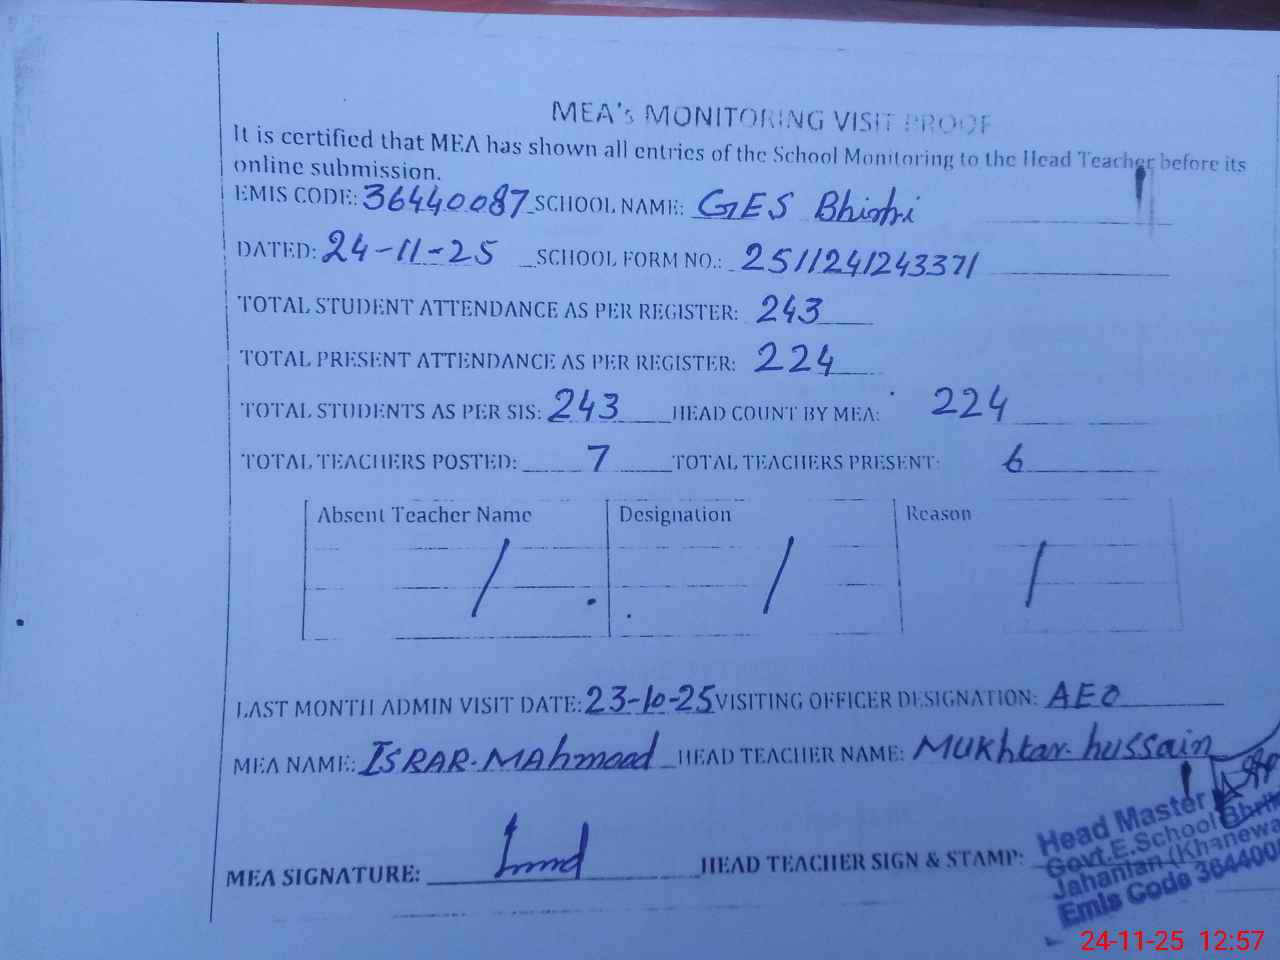 MEA's MONITORING VISIT PROOF
It is certified that MEA has shown all entries of the School Monitoring to the Head Teacher before its
online submission.
EMIS CODE: 36440087 SCHOOL NAME: GES
DATED: 24-11-25 SCHOOL FORM NO.: 2511241243371
TOTAL STUDENT ATTENDANCE AS PER REGISTER: 243
TOTAL PRESENT ATTENDANCE AS PER REGISTER: 224
TOTAL STUDENTS AS PER SIS: 243 HEAD COUNT BY MEA: 224
TOTAL TEACHERS POSTED: 7 TOTAL TEACHERS PRESENT: 6
Absent Teacher Name Designation Reason
/ / /
LAST MONTH ADMIN VISIT DATE: 23-10-25 VISITING OFFICER DESIGNATION: AEO
MEA NAME: ISRAR. MAhmood HEAD TEACHER NAME: Mukhtar. hussain
MEA SIGNATURE: HEAD TEACHER SIGN & STAMP:
Head Master
Govt.E.School
Jahanian (Khanewa
Emis Code 364400
24-11-25 12:57